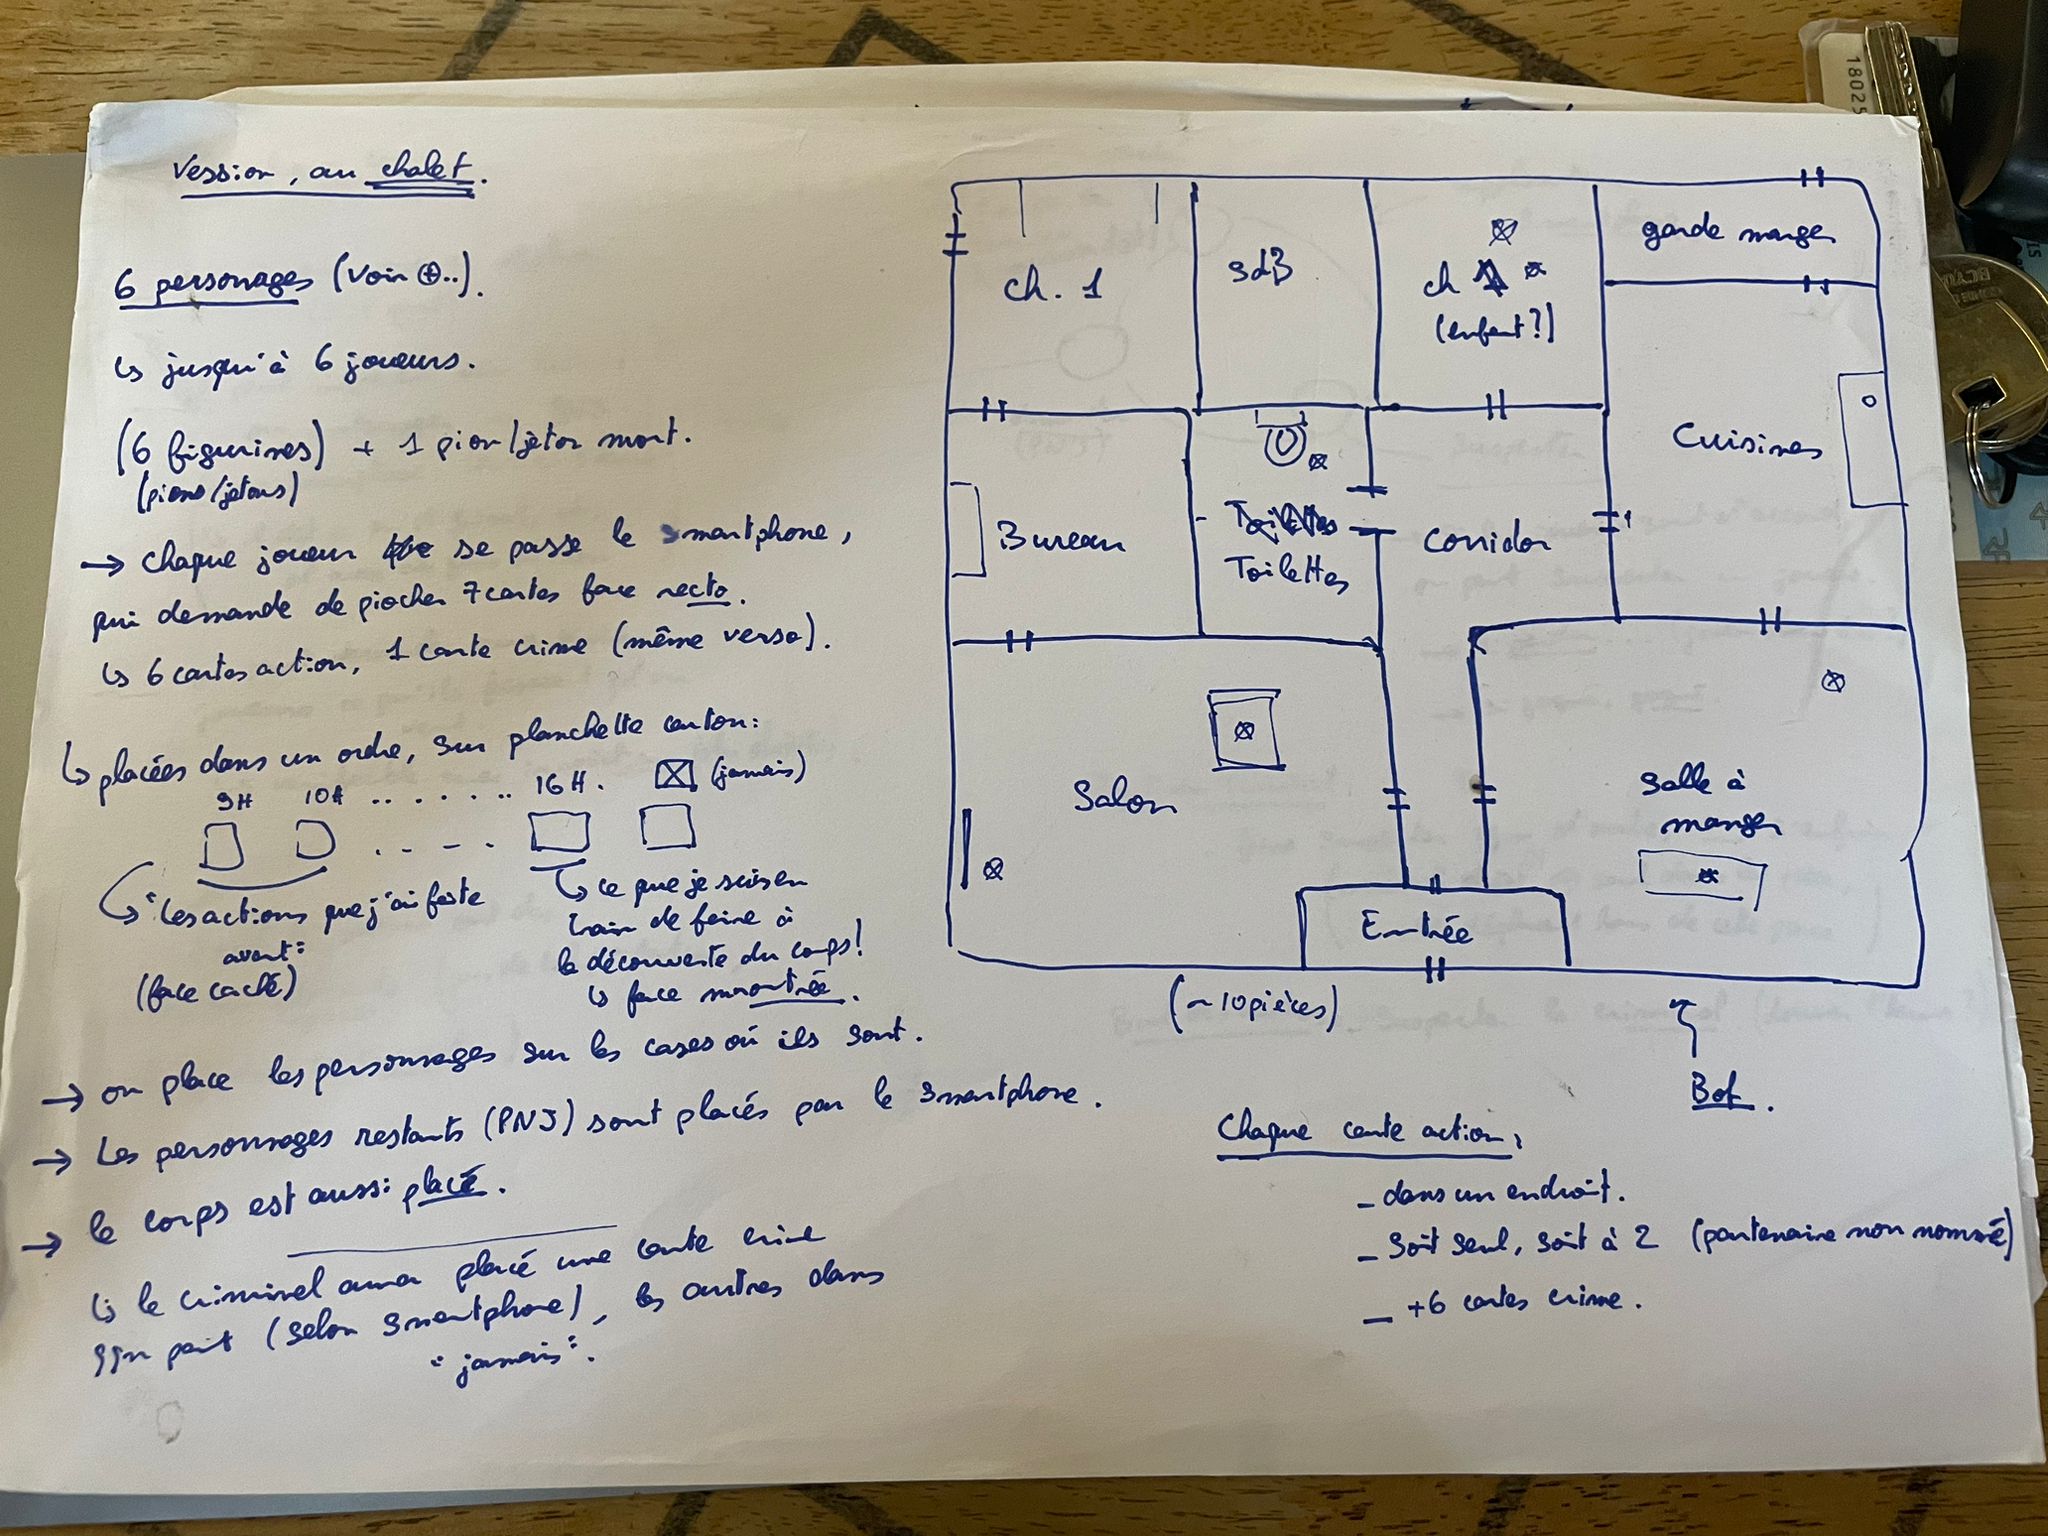 Version, au chalet.
6 personages (voir ⊕..).
↳ jusqu'à 6 joueurs.
(6 figurines) + 1 pion/jeton mort.
(pions/jetons)
→ chaque joueur se passe le smartphone,
qui demande de piocher 7 cartes face recto.
↳ 6 cartes action, 1 carte crime (même verso).
↳ placées dans un ordre, sur planchette carton:
9H 10H ........ 16H. ☒ (jamais)
"Les actions que j'ai faite
avant:
(face caché)
↳ ce que je suis en
train de faire à
la découverte du corps!
↳ face montrée.
→ on place les personnages sur les cases où ils sont.
→ Les personnages restants (PNJ) sont placés par le smartphone.
→ le corps est aussi placé.
↳ le criminel aura placé une carte crime
qqn part (selon smartphone), les autres dans
"jamais".
ch. 1
SdB
ch
(enfant?)
garde manger
Cuisines
Bureau
Toilettes
corridor
Salon
Salle à
manger
Entrée
(~10 pièces)
Bof.
Chaque carte action,
- dans un endroit.
- Soit seul, soit à 2 (partenaire non nommé)
- +6 cartes crime.